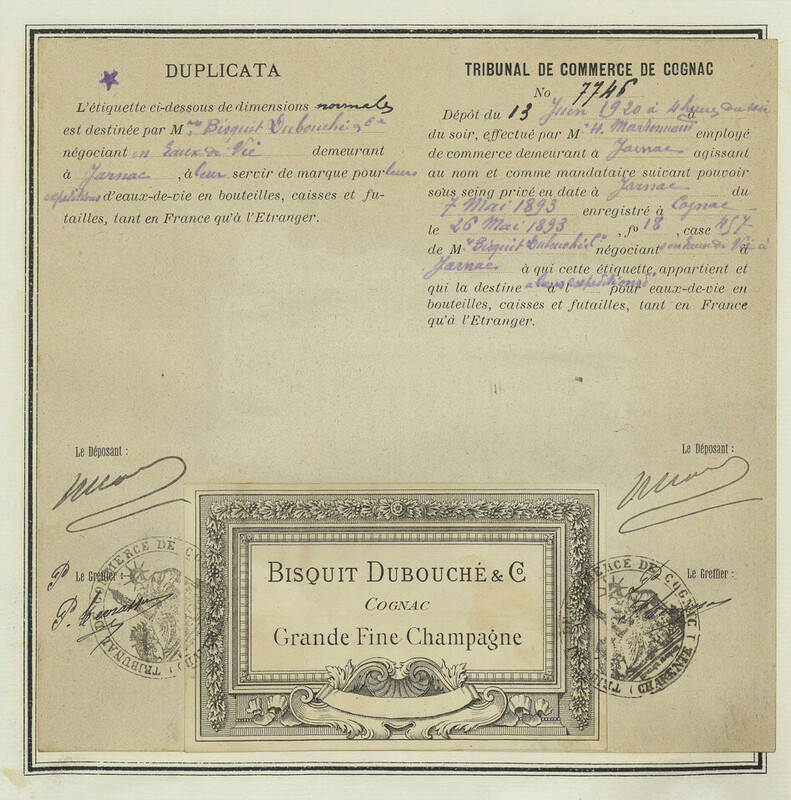 DUPLICATA
L'étiquette ci-dessous de dimensions normales
est destinée par M Bisquit Dubouché & Cie
négociant en Eaux de Vie demeurant
à Jarnac, à leur servir de marque pour leurs
expéditions d'eaux-de-vie en bouteilles, caisses et fu-
tailles, tant en France qu'à l'Etranger.
TRIBUNAL DE COMMERCE DE COGNAC
No 7746
Dépôt du 13 Juin 1920 à 4 heures du soir
du soir, effectué par M H. employé
de commerce demeurant à Jarnac agissant
au nom et comme mandataire suivant pouvoir
sous seing privé en date à Jarnac du
7 Mai 1893 enregistré à Cognac
le 26 Mai 1893, fo 18, case 457
de M Bisquit Dubouché & Cie négociant en Eaux de Vie à
Jarnac à qui cette étiquette appartient et
qui la destine à leurs expéditions d' pour eaux-de-vie en
bouteilles, caisses et futailles, tant en France
qu'à l'Etranger.
Le Déposant :
Le Déposant :
Le Greffier :
Le Greffier :
TRIBUNAL DE COMMERCE DE COGNAC
BISQUIT DUBOUCHÉ & Co
COGNAC
Grande Fine Champagne
TRIBUNAL DE COMMERCE DE COGNAC (CHARENTE)